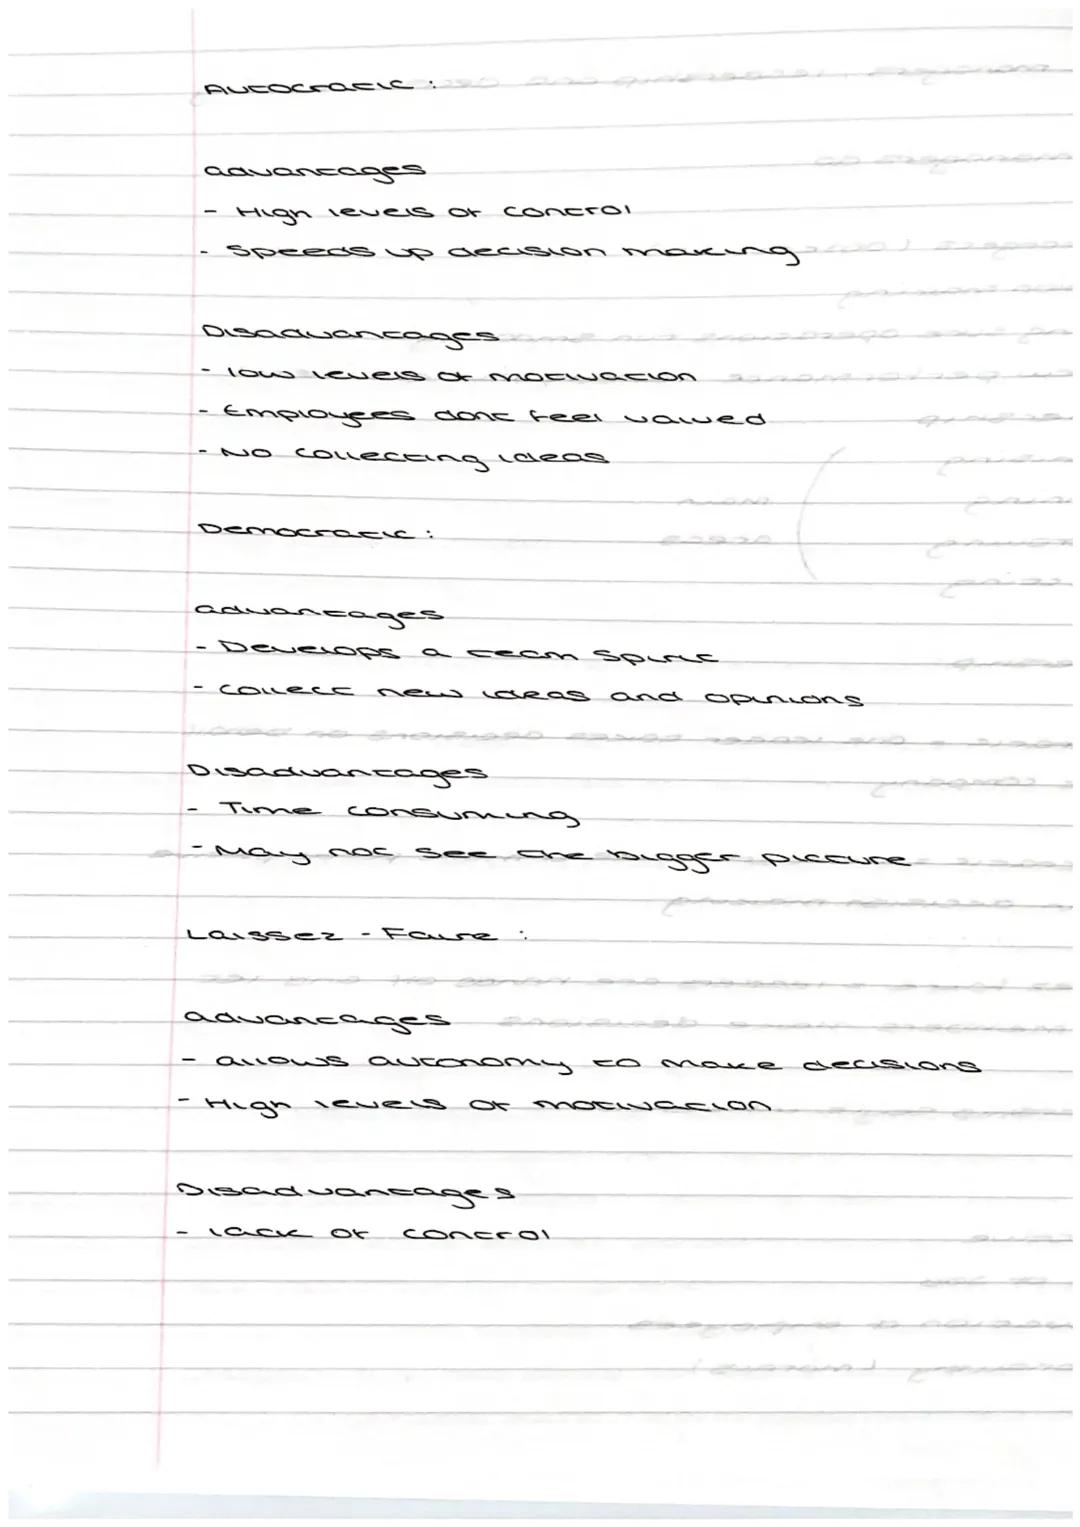 Autocratic :
advantages
- High levels of control
- Speeds up decision making
Disadvantages
- low levels of motivation
- Employees dont feel valued
- No collecting ideas
Democratic :
advantages
- Develops a team spirit
- collect new ideas and opinions
Disadvantages
- Time consuming
- May not see the bigger picture
Laissez - Faire :
advantages
- allows autonomy to make decisions
- High levels of motivation
Disadvantages
- lack of control